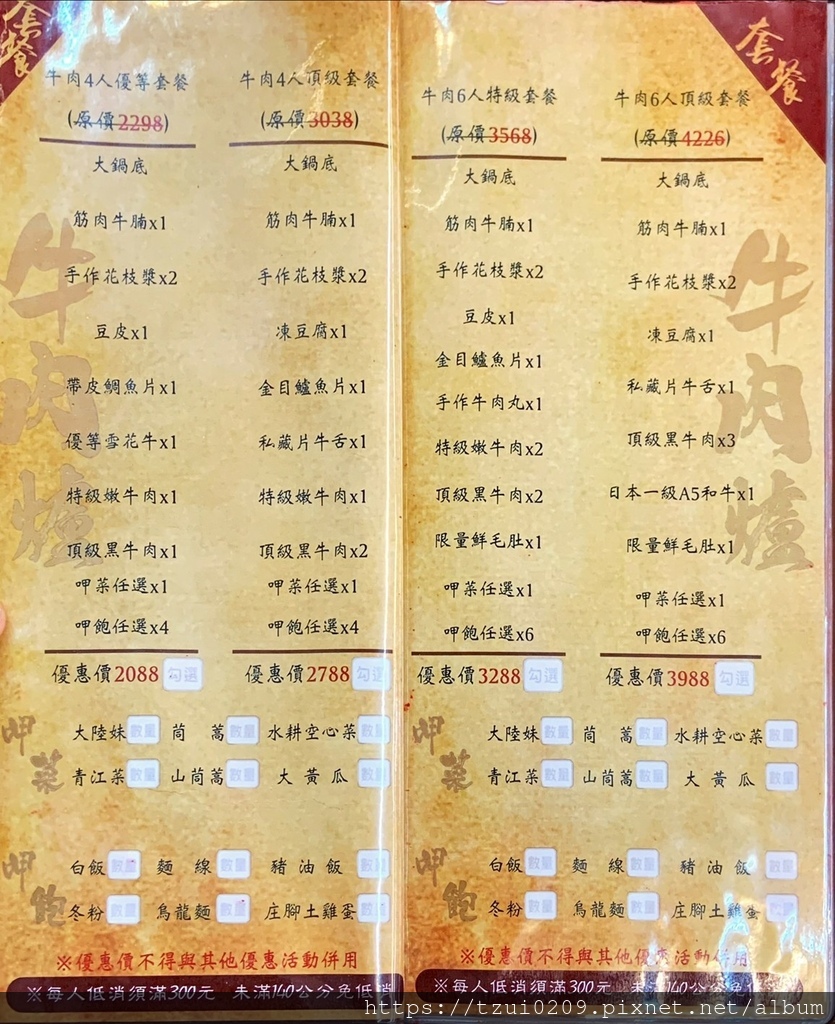 套餐
牛肉4人優等套餐
(原價2298)
大鍋底
筋肉牛腩x1
手作花枝漿x2
豆皮x1
帶皮鯛魚片x1
優等雪花牛x1
特級嫩牛肉x1
頂級黑牛肉x1
呷菜任選x1
呷飽任選x4
優惠價2088 勾選
牛肉4人頂級套餐
(原價3038)
大鍋底
筋肉牛腩x1
手作花枝漿x2
凍豆腐x1
金目鱸魚片x1
私藏片牛舌x1
特級嫩牛肉x1
頂級黑牛肉x2
呷菜任選x1
呷飽任選x4
優惠價2788 勾選
牛肉爐
呷菜
大陸妹 數量 茼蒿 數量 水耕空心菜 數量
青江菜 數量 山茼蒿 數量 大黃瓜 數量
呷飽
白飯 數量 麵線 數量 豬油飯 數量
冬粉 數量 烏龍麵 數量 庄腳土雞蛋 數量
※優惠價不得與其他優惠活動併用
※每人低消須滿300元 未滿140公分免低消
套餐
牛肉6人特級套餐
(原價3568)
大鍋底
筋肉牛腩x1
手作花枝漿x2
豆皮x1
金目鱸魚片x1
手作牛肉丸x1
特級嫩牛肉x2
頂級黑牛肉x2
限量鮮毛肚x1
呷菜任選x1
呷飽任選x6
優惠價3288 勾選
牛肉6人頂級套餐
(原價4226)
大鍋底
筋肉牛腩x1
手作花枝漿x2
凍豆腐x1
私藏片牛舌x1
頂級黑牛肉x3
日本一級A5和牛x1
限量鮮毛肚x1
呷菜任選x1
呷飽任選x6
優惠價3988 勾選
牛肉爐
呷菜
大陸妹 數量 茼蒿 數量 水耕空心菜 數量
青江菜 數量 山茼蒿 數量 大黃瓜 數量
呷飽
白飯 數量 麵線 數量 豬油飯 數量
冬粉 數量 烏龍麵 數量 庄腳土雞蛋 數量
※優惠價不得與其他優惠活動併用
※每人低消須滿300元 未滿140公分免低消
https://tzui0209.pixnet.net/album